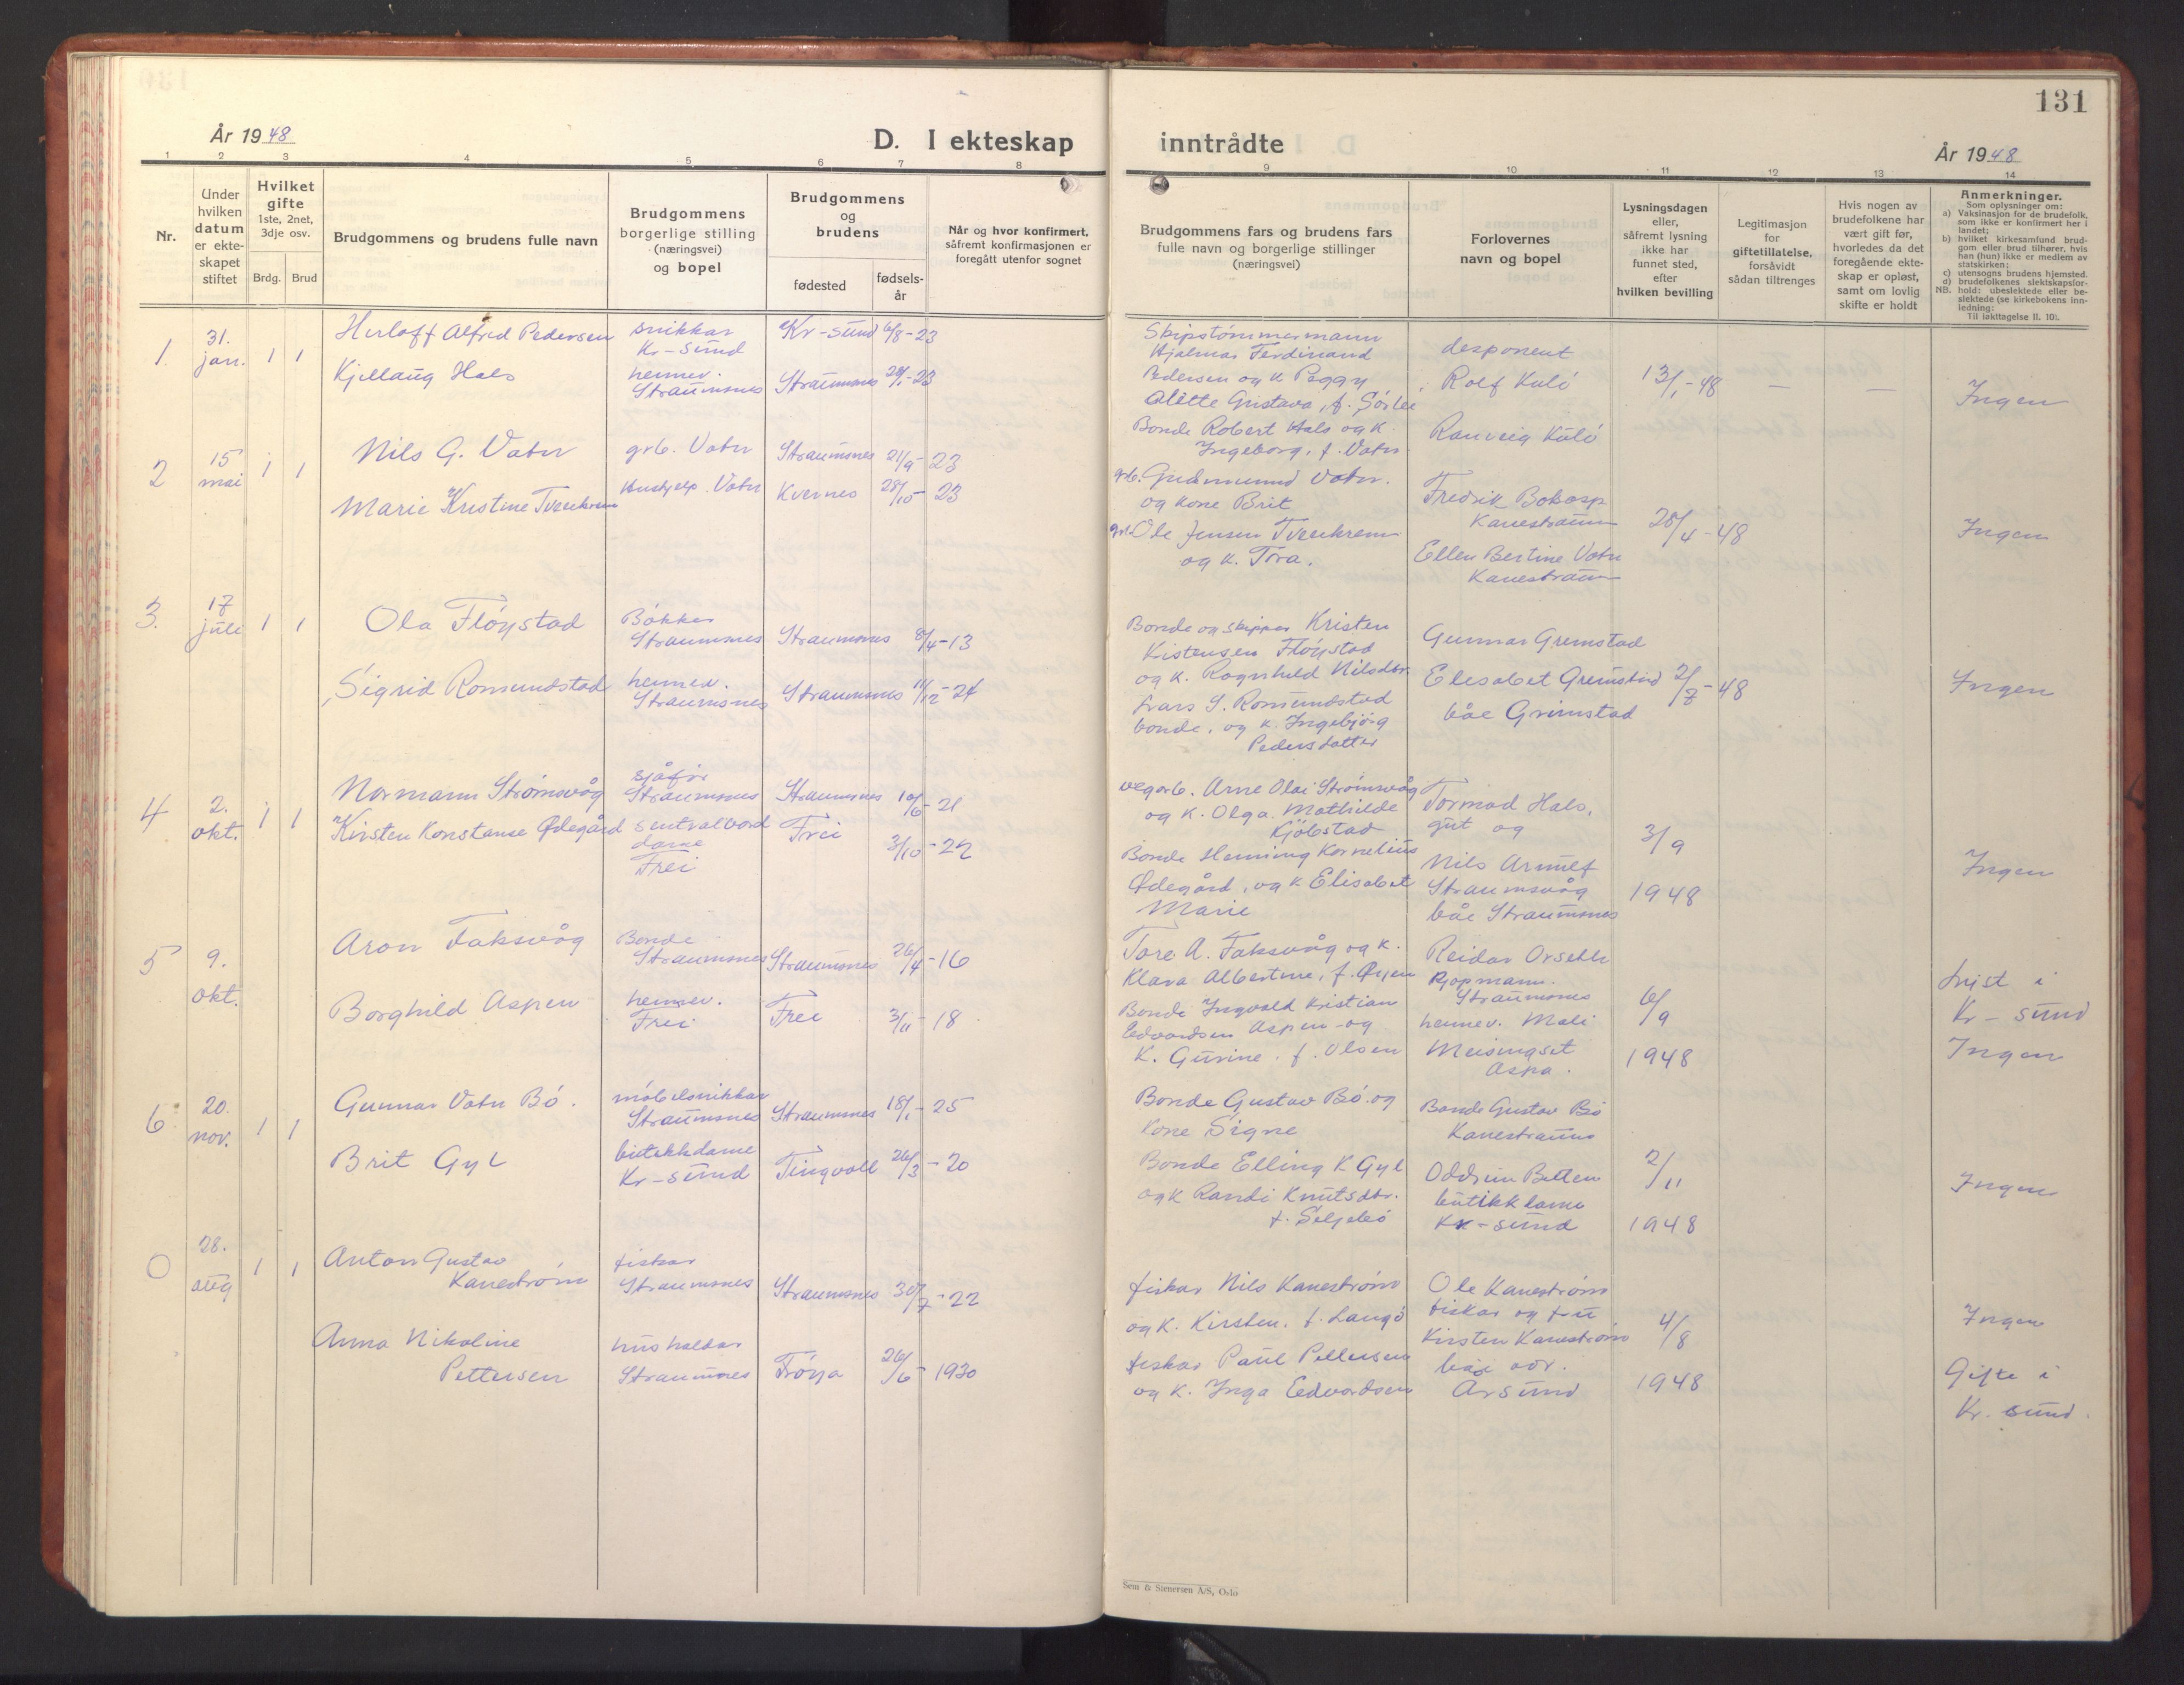 131
År 1948
D. I ekteskap
inntrådte
År 1948
1 2 3 4 5 6 7 8 9 10 11 12 13 14
Nr.
Under
hvilken
datum
er ekte-
skapet
stiftet
Hvilket
gifte
1ste, 2net,
3dje osv.
Brdg. Brud
Brudgommens og brudens fulle navn
Brudgommens
borgerlige stilling
(næringsvei)
og bopel
Brudgommens
og
brudens
fødested
fødsels-
år
Når og hvor konfirmert,
såfremt konfirmasjonen er
foregått utenfor sognet
Brudgommens fars og brudens fars
fulle navn og borgerlige stillinger
(næringsvei)
Forlovernes
navn og bopel
Lysningsdagen
eller,
såfremt lysning
ikke har
funnet sted,
efter
hvilken bevilling
Legitimasjon
for
giftetillatelse,
forsåvidt
sådan tiltrenges
Hvis nogen av
brudefolkene har
vært gift før,
hvorledes da det
foregående ekte-
skap er opløst,
samt om lovlig
skifte er holdt
Anmerkninger.
Som oplysninger om:
a) Vaksinasjon for de brudefolk,
som ikke er konfirmert her i
landet;
b) hvilket kirkesamfund brud-
gom eller brud tilhører, hvis
han (hun) ikke er medlem av
statskirken;
c) utensogns brudens hjemsted.
d) brudefolkenes slektskapsfor-
NB. hold: ubeslektede eller be-
slektede (se kirkebokens inn-
ledning:
Til iakttagelse II. 10).
1.
31.
jan.
1 1
Herloff Alfred Pedersen
Kjellaug Hals
snikkar
Kr-sund
heimev.
Straumsnes
Kr-sund 6/8-23
Straumsnes 24/1-23
Skipstömmermann
Hjalmar Ferdinand
Pedersen og k Peggy
Alette Gustava, f. Sörlie
Bonde Robert Hals og k.
Ingeborg, f. Vatn
desponent
Rolf Kulö
Ranveig Kulö
13/1-48
—
—
Ingen
2
15
mai
1 1
Nils G. Vatn
Marie Kristine Tveekrem
grb. Vatn
Hushjelp. Vatn
Straumsnes 21/9-23
Kvernes 28/10-23
grb. Gudmund Vatn.
og kone Brit
grb. Ole Jensen Tveekrem
og k. Tora.
Fredrik Bokasp
Kanestraum
Ellen Bertine Vatn
Kanestraum
28/4-48
Ingen
3.
17
juli
1 1
Ola Flöystad
Sigrid Romundstad
Bökker
Straumsnes
heimev.
Straumsnes
Straumsnes 8/4-13
Straumsnes 11/12-24
Bonde og skipper Kristen
Kistensen Flöystad
og k. Ragnhild Nilsdtr.
Lars S. Romundstad
bonde, og k. Ingebjörg
Pedersdatter
Gunnar Gremstad
Elesabet Gremstad
båe Grimstad
2/7-48
Ingen
4
2.
okt.
1 1
Normann Strömsvåg
Kirsten Konstanse Ødegård
sjåför
Straumsnes
sentralbord
dame
Frei
Straumsnes 10/6-21
Frei 3/10-22
vegarb. Arne Olai Strömsvåg
og k. Olga Mathilde
Kjöbstad
Bonde Henning Kornelius
Ødegård, og k Elisabet
Marie
Tormod Hals,
gut og
Nils Arnulf
Straumsvåg
båe Straumsnes
3/9
1948
Ingen
5
9.
okt.
Aron Faksvåg
Borghild Aspen
Bonde
Straumsnes
heimev.
Frei
Straumsnes 26/4-16
Frei 3/11-18
Tore A. Faksvåg og k.
Klara Albertine, f. Øyen
Bonde Ingvald Kristian
Edvardsen Aspen og
k. Gurine, f. Olsen
Reidar Orset
kjopmann.
Straumsnes
heimev. Mali
Meisingset
Aspa.
6/9
1948
Lyst i
Kr-sund
Ingen
6
20.
nov.
1 1
Gunnar Vatn Bö.
Brit Gyl
möbelsnikkar
Straumsnes
butikkdame
Kr-sund
Straumsnes 18/1-25
Tingvoll 26/3-20
Bonde Gustav Bö og
kone Signe
Bonde Elling K Gyl
og k Randi Knutsdtr.
f. Seljebö
Bonde Gustav Bö
Kanestraum
Oddrun Betten
butikkdame
Kr-sund
2/11
1948
Ingen
0
28.
aug
1 1
Anton Gustav
Kaneström
Anna Nikoline
Pettersen
fiskar
Straumsnes
hushaldar
Straumsnes
Straumsnes 30/7-22
Fröya 26/6-1930
fiskar Nils Kaneström
og k. Kirsten, f. Langö
fiskar Paul Pettersen
og k. Inga Edvardsen
Ole Kaneström
fiskar og fru
Kirsten Kaneström
båe adr.
Arsund
4/8
1948
Ingen
Gifte i
Kr. sund.
Sem & Stenersen A/S, Oslo